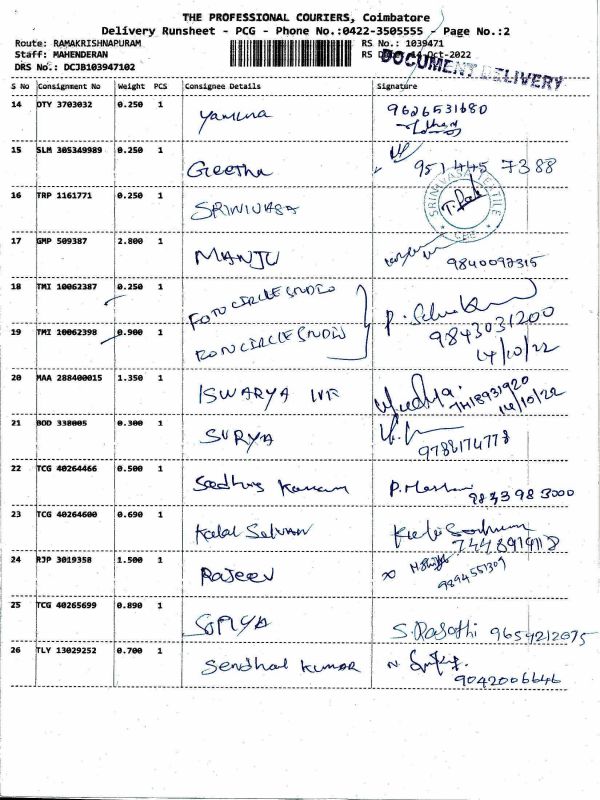 THE PROFESSIONAL COURIERS, Coimbatore
Delivery Runsheet - PCG - Phone No.:0422-3505555 - Page No.:2
Route: RAMAKRISHNAPURAM RS No.: 1039471
Staff: MAHENDERAN RS Date: 14-Oct-2022
DRS No.: DCJB103947102 DOCUMENT DELIVERY
S No Consignment No Weight PCS Consignee Details Signature
14 DTY 3703032 0.250 1 Yamuna 9626531680
15 SLM 305349989 0.250 1 Geetha 951445 7388
16 TRP 1161771 0.250 1 SRINIVASA SRINIVASA TEXTILE CBE
17 GMP 509387 2.800 1 MANJU 9840097315
18 TMI 10062387 0.250 1 FOTO CIRCLE STUDIO
19 TMI 10062398 0.900 1 FOTO CIRCLE STUDIO 9843031200
14/10/22
20 MAA 288400015 1.350 1 ISWARYA IVF 7418931920
14/10/22
21 BOD 338005 0.300 1 SURYA 9788174778
22 TCG 40264466 0.500 1 9833983000
23 TCG 40264600 0.690 1 Kalai Selvan 7448919118
24 RJP 3019358 1.500 1 Rajeev 9894551309
25 TCG 40265699 0.890 1 SOMYA 9659212075
26 TLY 13029252 0.700 1 Sendhal Kumar 9042006646